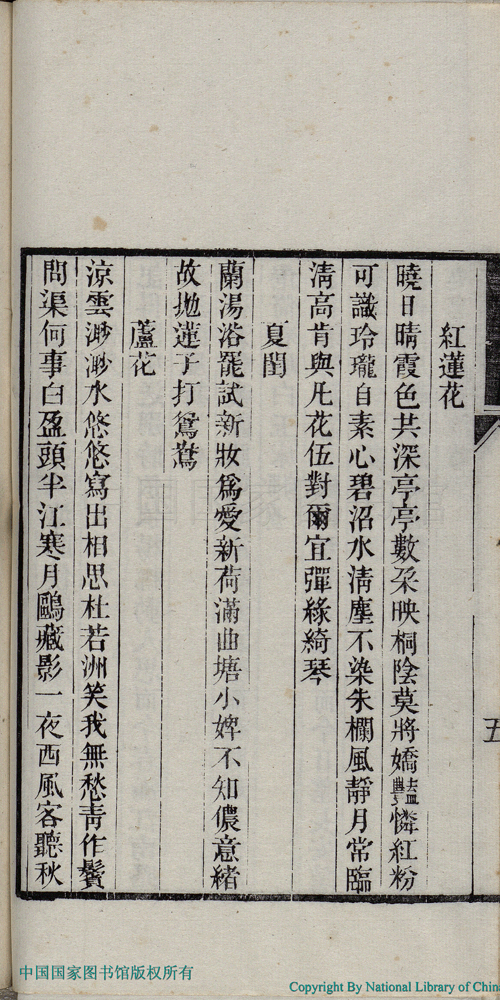 紅蓮花
曉日晴霞色共深亭亭數朶映桐陰莫將嬌豔憐紅粉
可識玲瓏自素心碧沼水淸塵不染朱欄風靜月常臨
淸高肯與凡花伍對爾宜彈綠綺琴
夏閨
蘭湯浴罷試新妝爲愛新荷滿曲塘小婢不知儂意緒
故拋蓮子打鴛鴦
蘆花
涼雲渺渺水悠悠寫出相思杜若洲笑我無愁靑作鬢
問渠何事白盈頭半江寒月鷗藏影一夜西風客聽秋
五
中国国家图书馆版权所有
Copyright By National Library of Chin